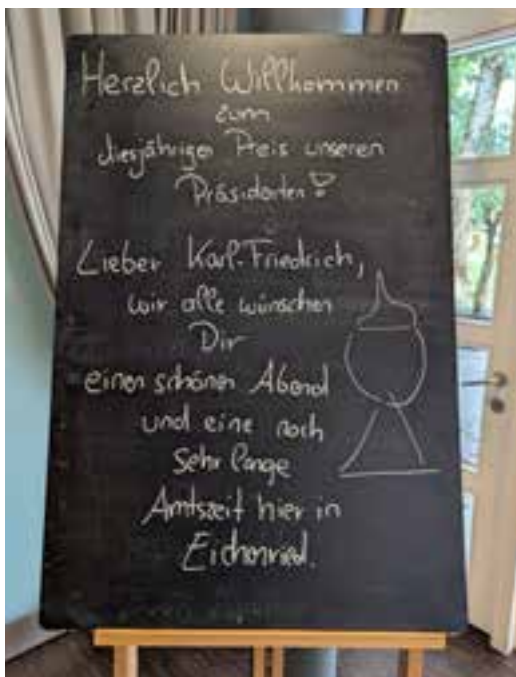 Herzlich Willkommen
zum
diesjährigen Preis unseren
Präsidenten!
Lieber Karl-Friedrich,
wir alle wünschen
Dir
einen schönen Abend
und eine noch
sehr lange
Amtszeit hier in
Eichenried.